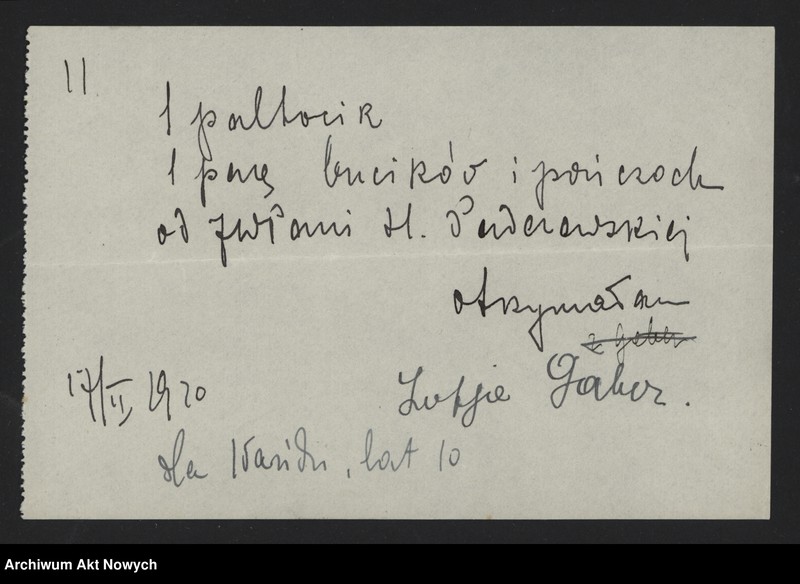 11
1 paltocik
1 parę bucików i pończoch
od JWPani H. Paderewskiej
otrzymałam
Zofja Gaber.
17/II 1920
dla Kazika, lat 10
Archiwum Akt Nowych